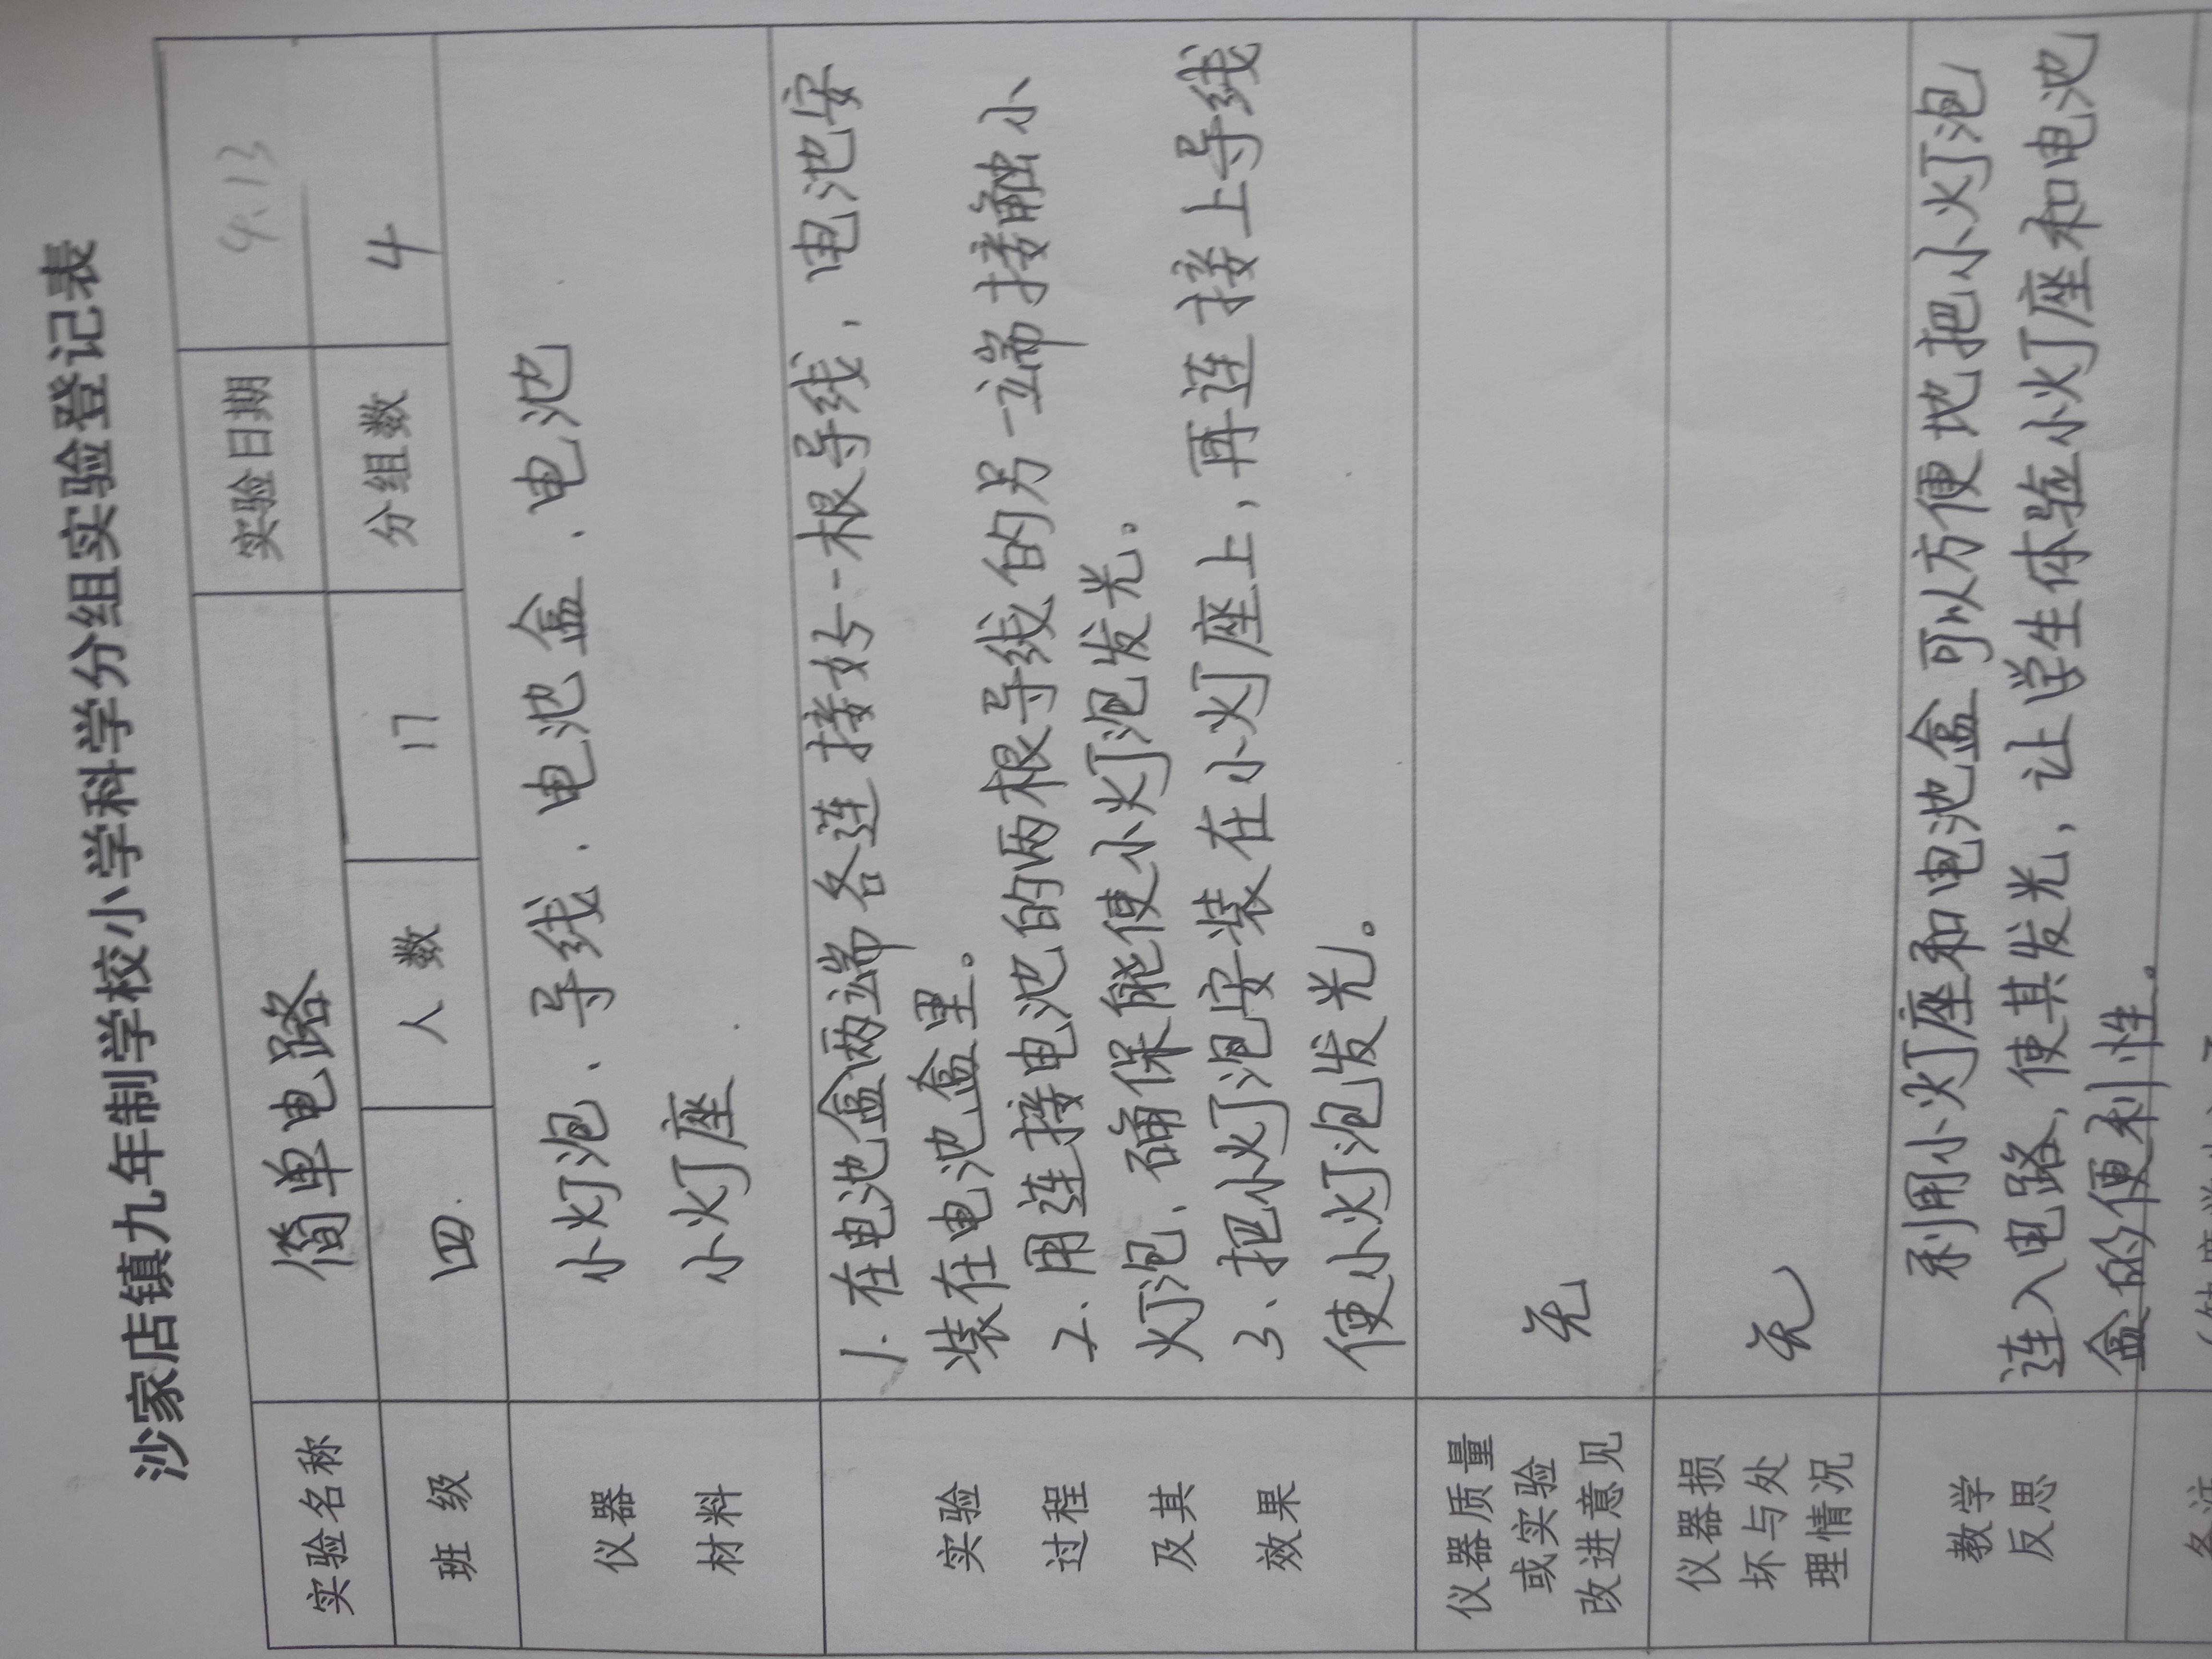 沙家店镇九年制学校小学科学分组实验登记表
实验名称 简单电路 实验日期 4.13
班 级 四. 人 数 17 分组数 4
仪器 小灯泡、导线、电池盒、电池
材料 小灯座
实验 1、在电池盒两端各连接好一根导线，电池安
装在电池盒里。
过程 2、用连接电池的两根导线的另一端接触小
及其 灯泡、确保能使小灯泡发光。
3、把小灯泡安装在小灯座上，再连接上导线
效果 使小灯泡发光。
仪器质量
或实验 无
改进意见
仪器损
坏与处 无
理情况
教学 利用小灯座和电池盒可以方便地把小灯泡
反思 连入电路，使其发光，让学生体验小灯座和电池
盒的便利性。
备注